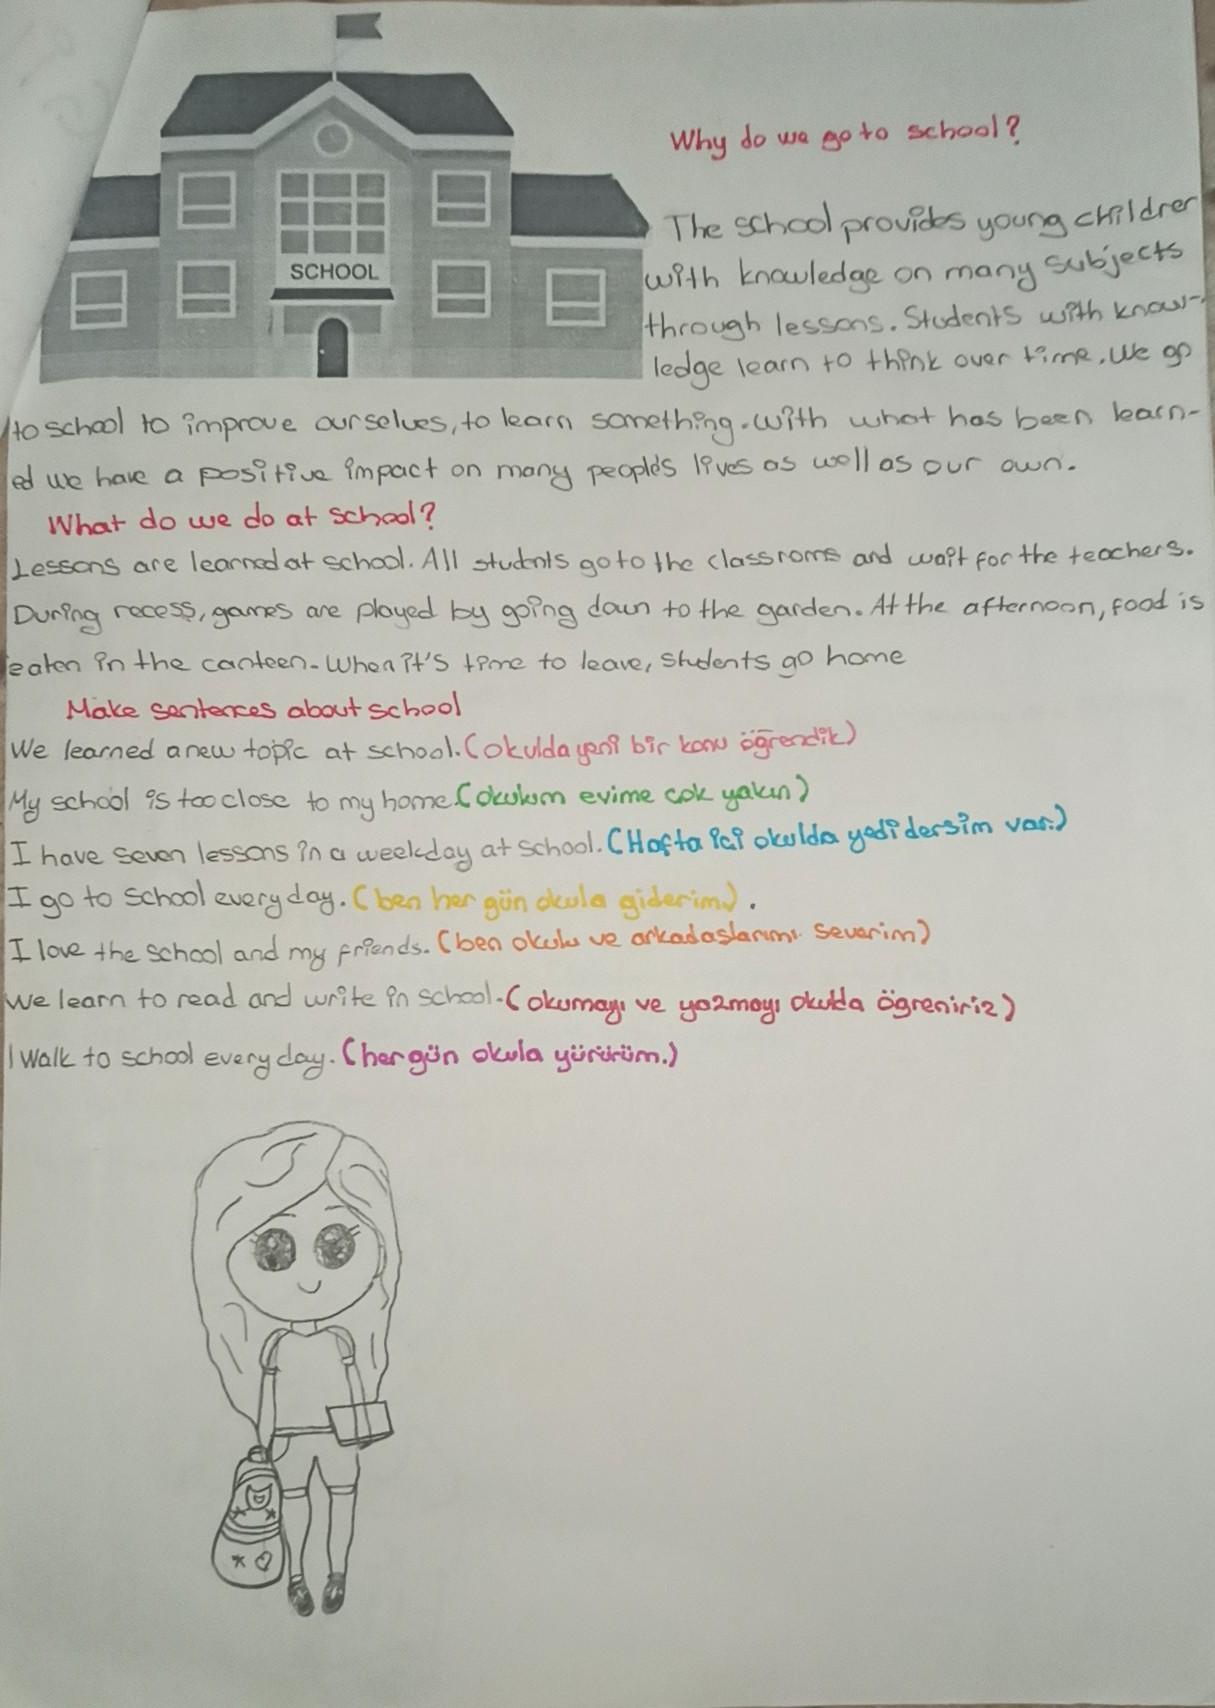 SCHOOL
Why do we go to school?
The school provides young children
with knowledge on many subjects
through lessons. Students with know-
ledge learn to think over time. We go
to school to improve ourselves, to learn something. with what has been learn-
ed we have a positive impact on many people's lives as well as our own.
What do we do at school?
Lessons are learned at school. All students go to the classroms and wait for the teachers.
During recess, games are played by going down to the garden. At the afternoon, food is
eaten in the canteen. When it's time to leave, students go home
Make sentences about school
We learned a new topic at school. (okulda yeni bir konu öğrendik)
My school is too close to my home. (okulum evime cok yakın)
I have seven lessons in a weekday at school. (Hafta içi okulda yedi dersim var.)
I go to school every day. (ben her gün okula giderim).
I love the school and my friends. (ben okulu ve arkadaslarımı severim)
We learn to read and write in school. (okumayı ve yazmayı okulda ögreniriz)
I walk to school every day. (her gün okula yürürüm.)